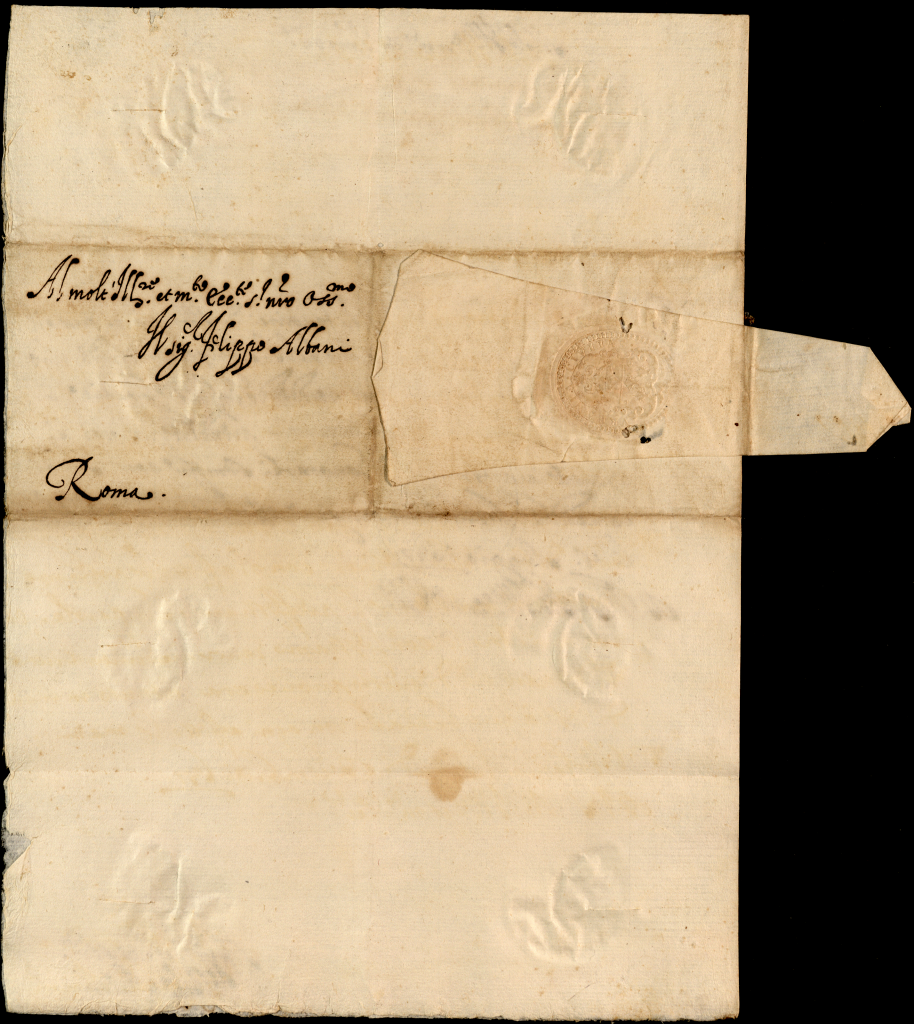 Al molt' Ill.re et m.to Ecc.te S.r n.ro Oss.mo
Il sig.r Filippo Albani
Roma.